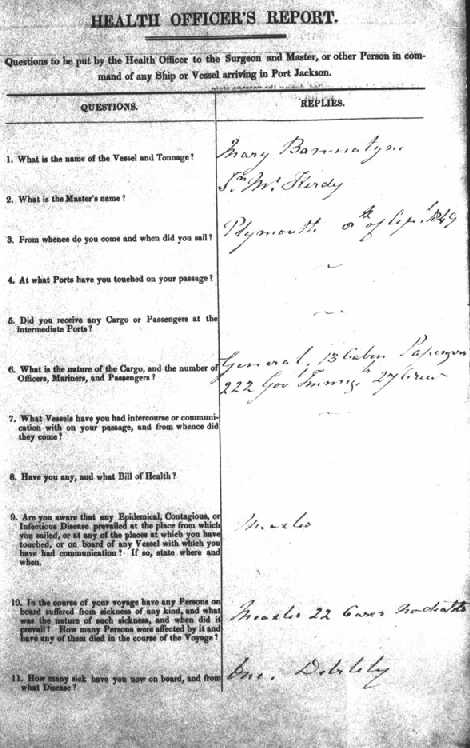 HEALTH OFFICER'S REPORT.
Questions to be put by the Health Officer to the Surgeon and Master, or other Person in com-
mand of any Ship or Vessel arriving in Port Jackson.
QUESTIONS.
REPLIES.
1. What is the name of the Vessel and Tonnage?
Mary Bannatyne
2. What is the Master's name?
3. From whence do you come and when did you sail?
Plymouth 8th of 1849
4. At what Ports have you touched on your passage?
5. Did you receive any Cargo or Passengers at the
Intermediate Ports?
6. What is the nature of the Cargo, and the number of
Officers, Mariners, and Passengers?
General, 13 Cabin Passengers
222 Govt Immigts 27 Crew
7. What Vessels have you had intercourse or communi-
cation with on your passage, and from whence did
they come?
8. Have you any, and what Bill of Health?
9. Are you aware that any Epidemical, Contagious, or
Infectious Disease prevailed at the place from which
you sailed, or at any of the places at which you have
touched, or on board of any Vessel with which you
have had communication? If so, state where and
when.
Measles
10. In the course of your voyage have any Persons on
board suffered from sickness of any kind, and what
was the nature of such sickness, and when did it
prevail? How many Persons were affected by it and
have any of them died in the course of the Voyage?
Measles 22 Cases no deaths
11. How many sick have you now on board, and from
what Disease?
One. Debility